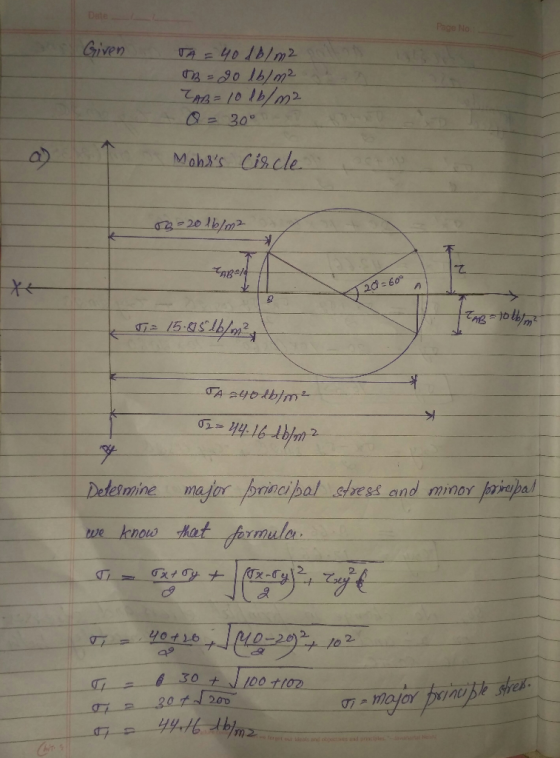 Date
Page No.
Given σA = 40 lb/m²
σB = 20 lb/m²
τAB = 10 lb/m²
θ = 30°
a) Mohr's Circle
σB = 20 lb/m²
τAB=1
τ
2θ=60°
X
B
A
τAB = 10 lb/m²
σ1 = 15.815 lb/m²
σA = 40 lb/m²
σ2 = 44.16 lb/m²
y
Determine major principal stress and minor principal
we know that formula.
σ1 = σx+σy/2 + √(σx-σy/2)² + τxy²
σ1 = 40+20/2 + √(40-20/2)² + 10²
σ1 = 30 + √100+100
σ1 = 30 + √200 σ1 = major principle stress.
σ1 = 44.16 lb/m²